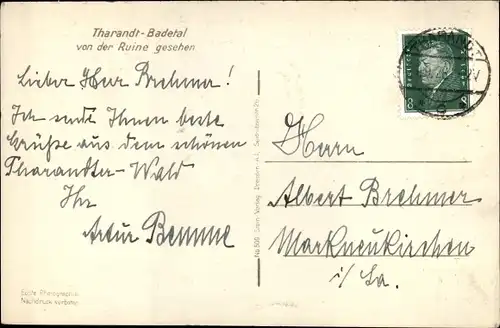 Tharandt-Badetal
von der Ruine gesehen
Lieber Herr Brehmer!
Ich sende Ihnen beste
Grüße aus dem schönen
Tharandter-Wald
Ihr
Artur Bemme
Echte Photographie
Nachdruck verboten
8 8
Herrn
Albert Brehmer
Markneukirchen
i/Sa.